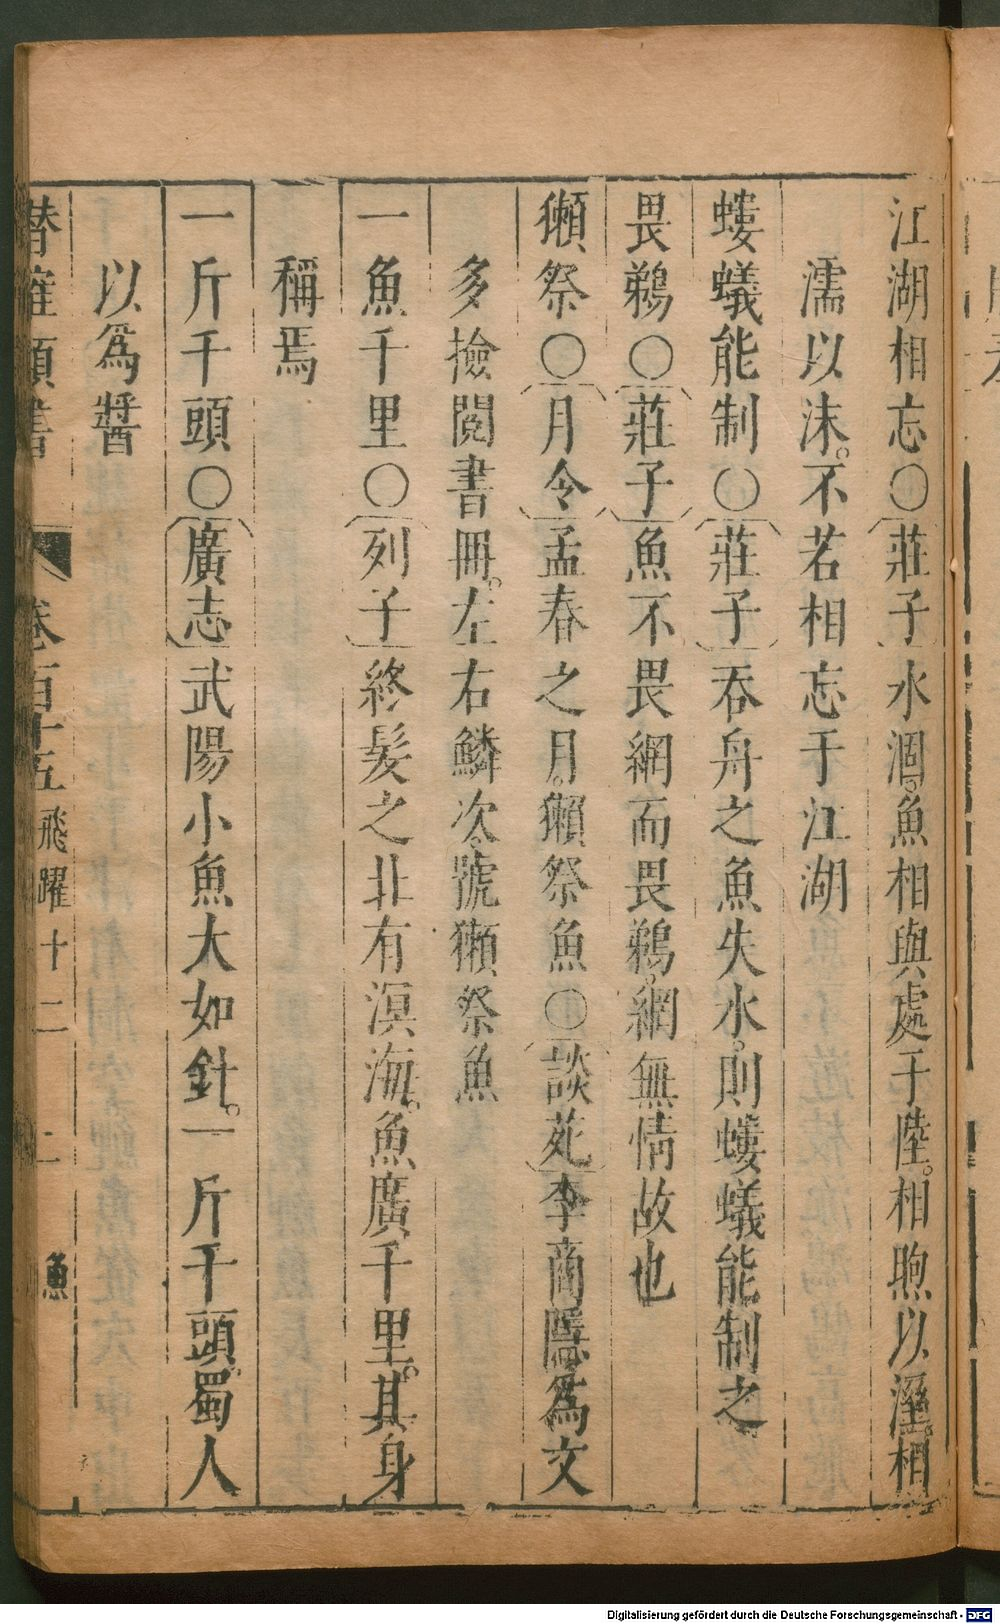 江湖相忘○莊子水涸。魚相與處于陸。相喣以溼。相
濡以沫。不若相忘于江湖
螻蟻能制○莊子吞舟之魚失水。則螻蟻能制之
畏鵜○莊子魚不畏網而畏鵜。網無情故也
獺祭○月令孟春之月。獺祭魚○談苑李商隱為文
多撿閱書冊。左右鱗次。號獺祭魚
一魚千里○列子終髮之北有溟海。魚廣千里。其身
稱焉
一斤千頭○廣志武陽小魚大如針。一斤千頭。蜀人
以為醬
潛確類書 卷百十五 飛躍十二 二 魚
Digitalisierung gefördert durch die Deutsche Forschungsgemeinschaft - DFG